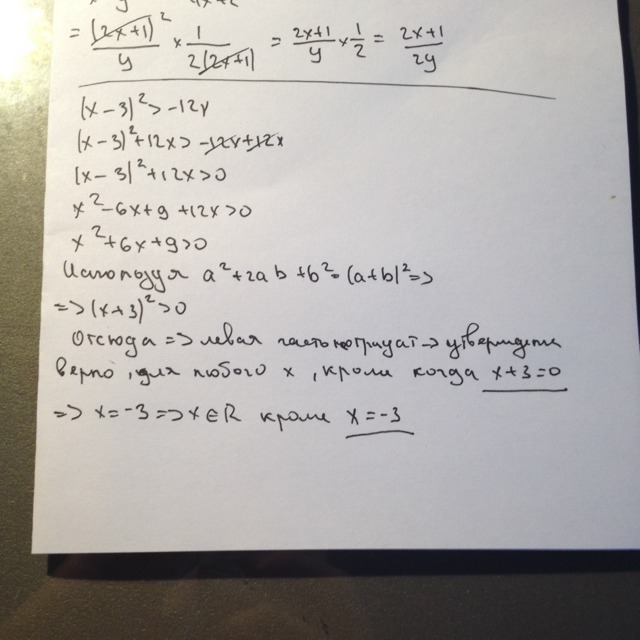 = (2x+1)² / y × 1 / 2(2x+1) = 2x+1 / y × 1/2 = 2x+1 / 2y
(x-3)²>-12x
(x-3)²+12x>-12x+12x
(x-3)²+12x>0
x²-6x+9+12x>0
x²+6x+9>0
Используя a²+2ab+b²=(a+b)²=>
=>(x+3)²>0
Отсюда => левая часть неотрицат -> утвержден
верно, для любого x, кроме когда x+3=0
=> x=-3=>x∈R кроме x=-3